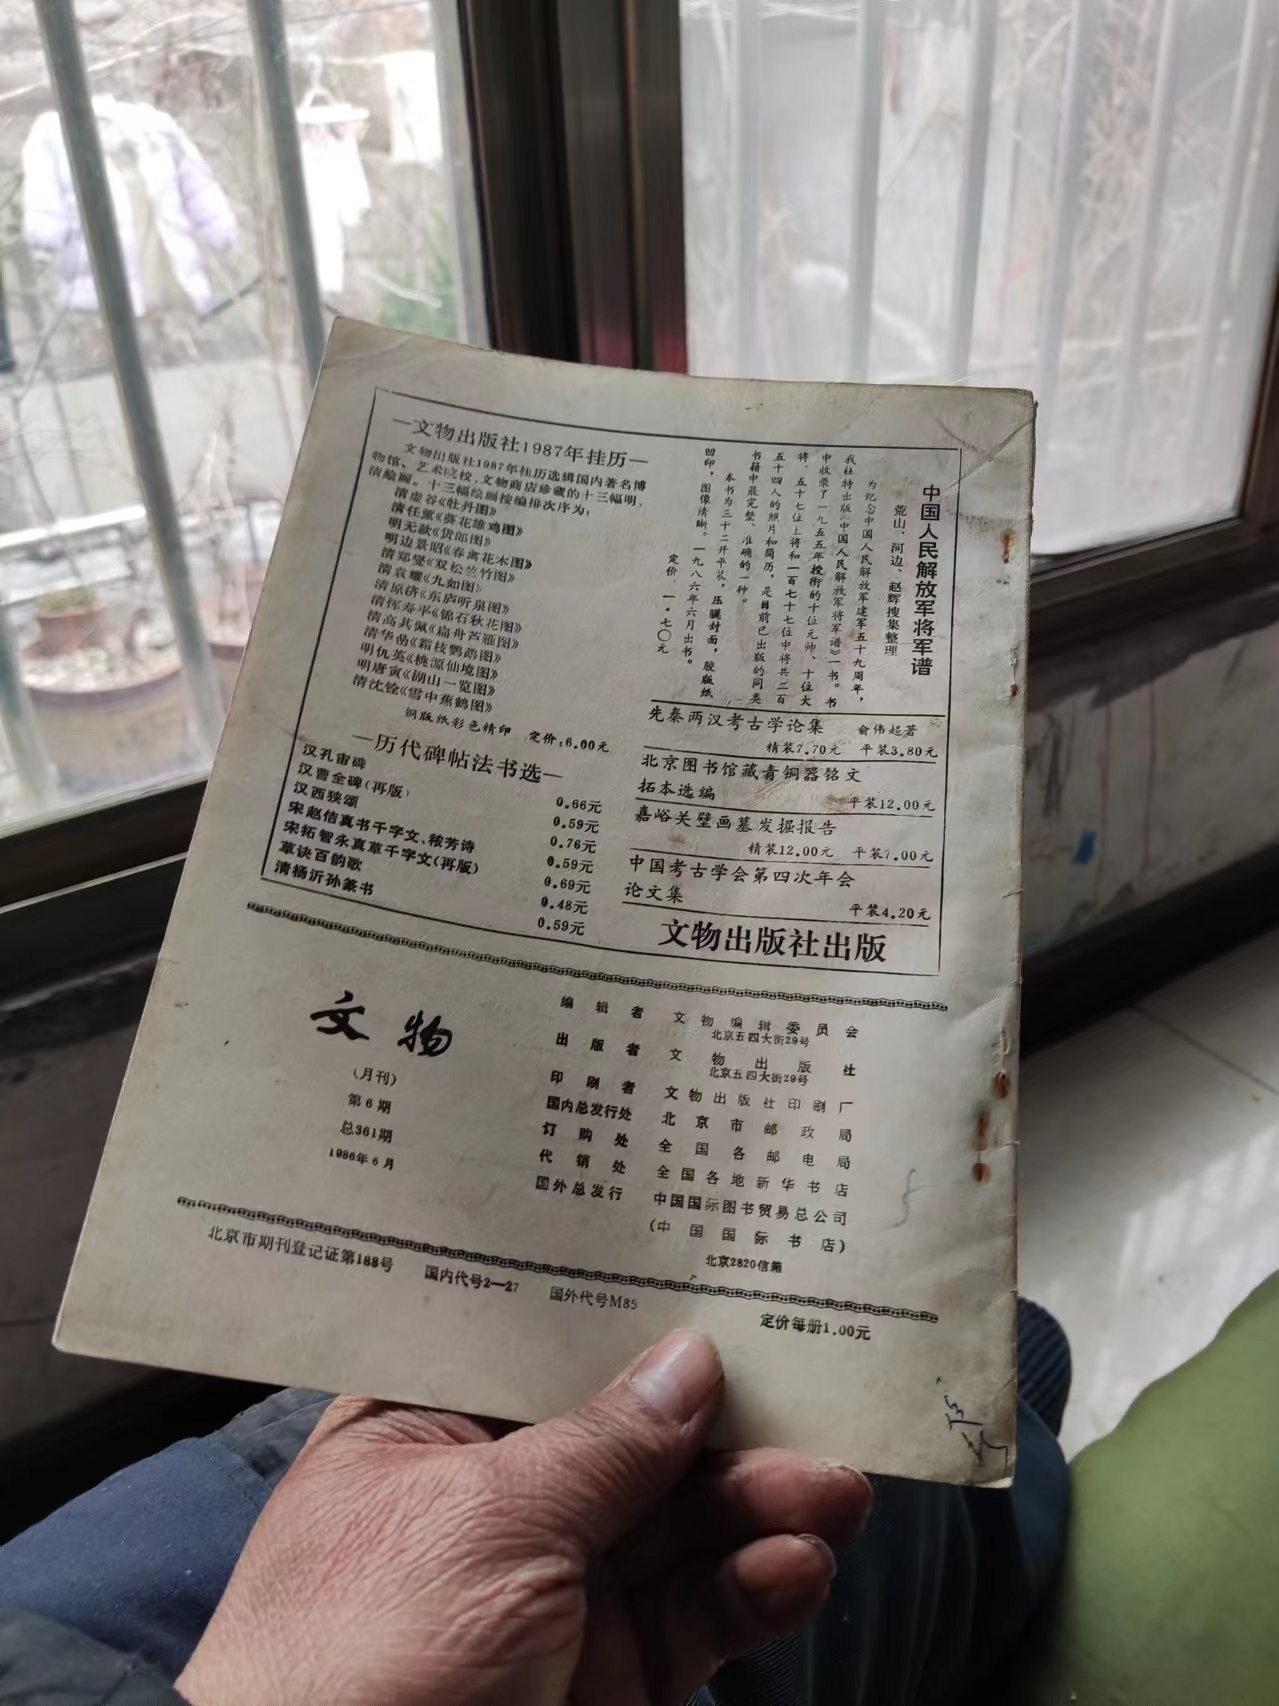 —文物出版社1987年挂历—
文物出版社1987年挂历选辑国内著名博
物馆、艺术院校、文物商店珍藏的十三幅明、
清绘画。十三幅绘画按编排次序为：
清虚谷《牡丹图》
清任薰《葵花雄鸡图》
明无款《货郎图》
明边景昭《春禽花木图》
清郑燮《双松兰竹图》
清袁耀《九如图》
清原济《东庐听泉图》
清恽寿平《锦石秋花图》
清高其佩《扁舟芦雁图》
清华嵒《霜枝鹦鹉图》
明仇英《桃源仙境图》
明唐寅《湖山一览图》
清沈铨《雪中蕉鹤图》
铜版纸彩色精印 定价：6.00元
—历代碑帖法书选—
汉孔宙碑 0.66元
汉曹全碑（再版） 0.59元
汉西狭颂 0.76元
宋赵佶真书千字文、秾芳诗 0.59元
宋拓智永真草千字文（再版） 0.69元
草诀百韵歌 0.48元
清杨沂孙篆书 0.59元
中国人民解放军将军谱
荒山、河边、赵辉搜集整理
为纪念中国人民解放军建军五十九周年，
我社特出版《中国人民解放军将军谱》一书。书
中收录了一九五五年授衔的十位元帅、十位大
将、五十七位上将和一百七十七位中将共二百
五十四人的照片和简历，是目前已出版的同类
书籍中最完整、准确的一种。
本书为三十二开平装，压膜封面，胶版纸
凹印，图像清晰。一九八六年六月出书。
定价：一·七〇元
先秦两汉考古学论集 俞伟超著
精装7.70元 平装3.80元
北京图书馆藏青铜器铭文
拓本选编 平装12.00元
嘉峪关壁画墓发掘报告
精装12.00元 平装7.00元
中国考古学会第四次年会
论文集 平装4.20元
文物出版社出版
文物
（月刊）
第6期
总361期
1986年6月
编辑者 文物编辑委员会
北京五四大街29号
出版者 文物出版社
北京五四大街29号
印刷者 文物出版社印刷厂
国内总发行处 北京市邮政局
订购处 全国各邮电局
代销处 全国各地新华书店
国外总发行 中国国际图书贸易总公司
（中国国际书店）
北京2820信箱
北京市期刊登记证第188号 国内代号2—27 国外代号M85 定价每册1.00元